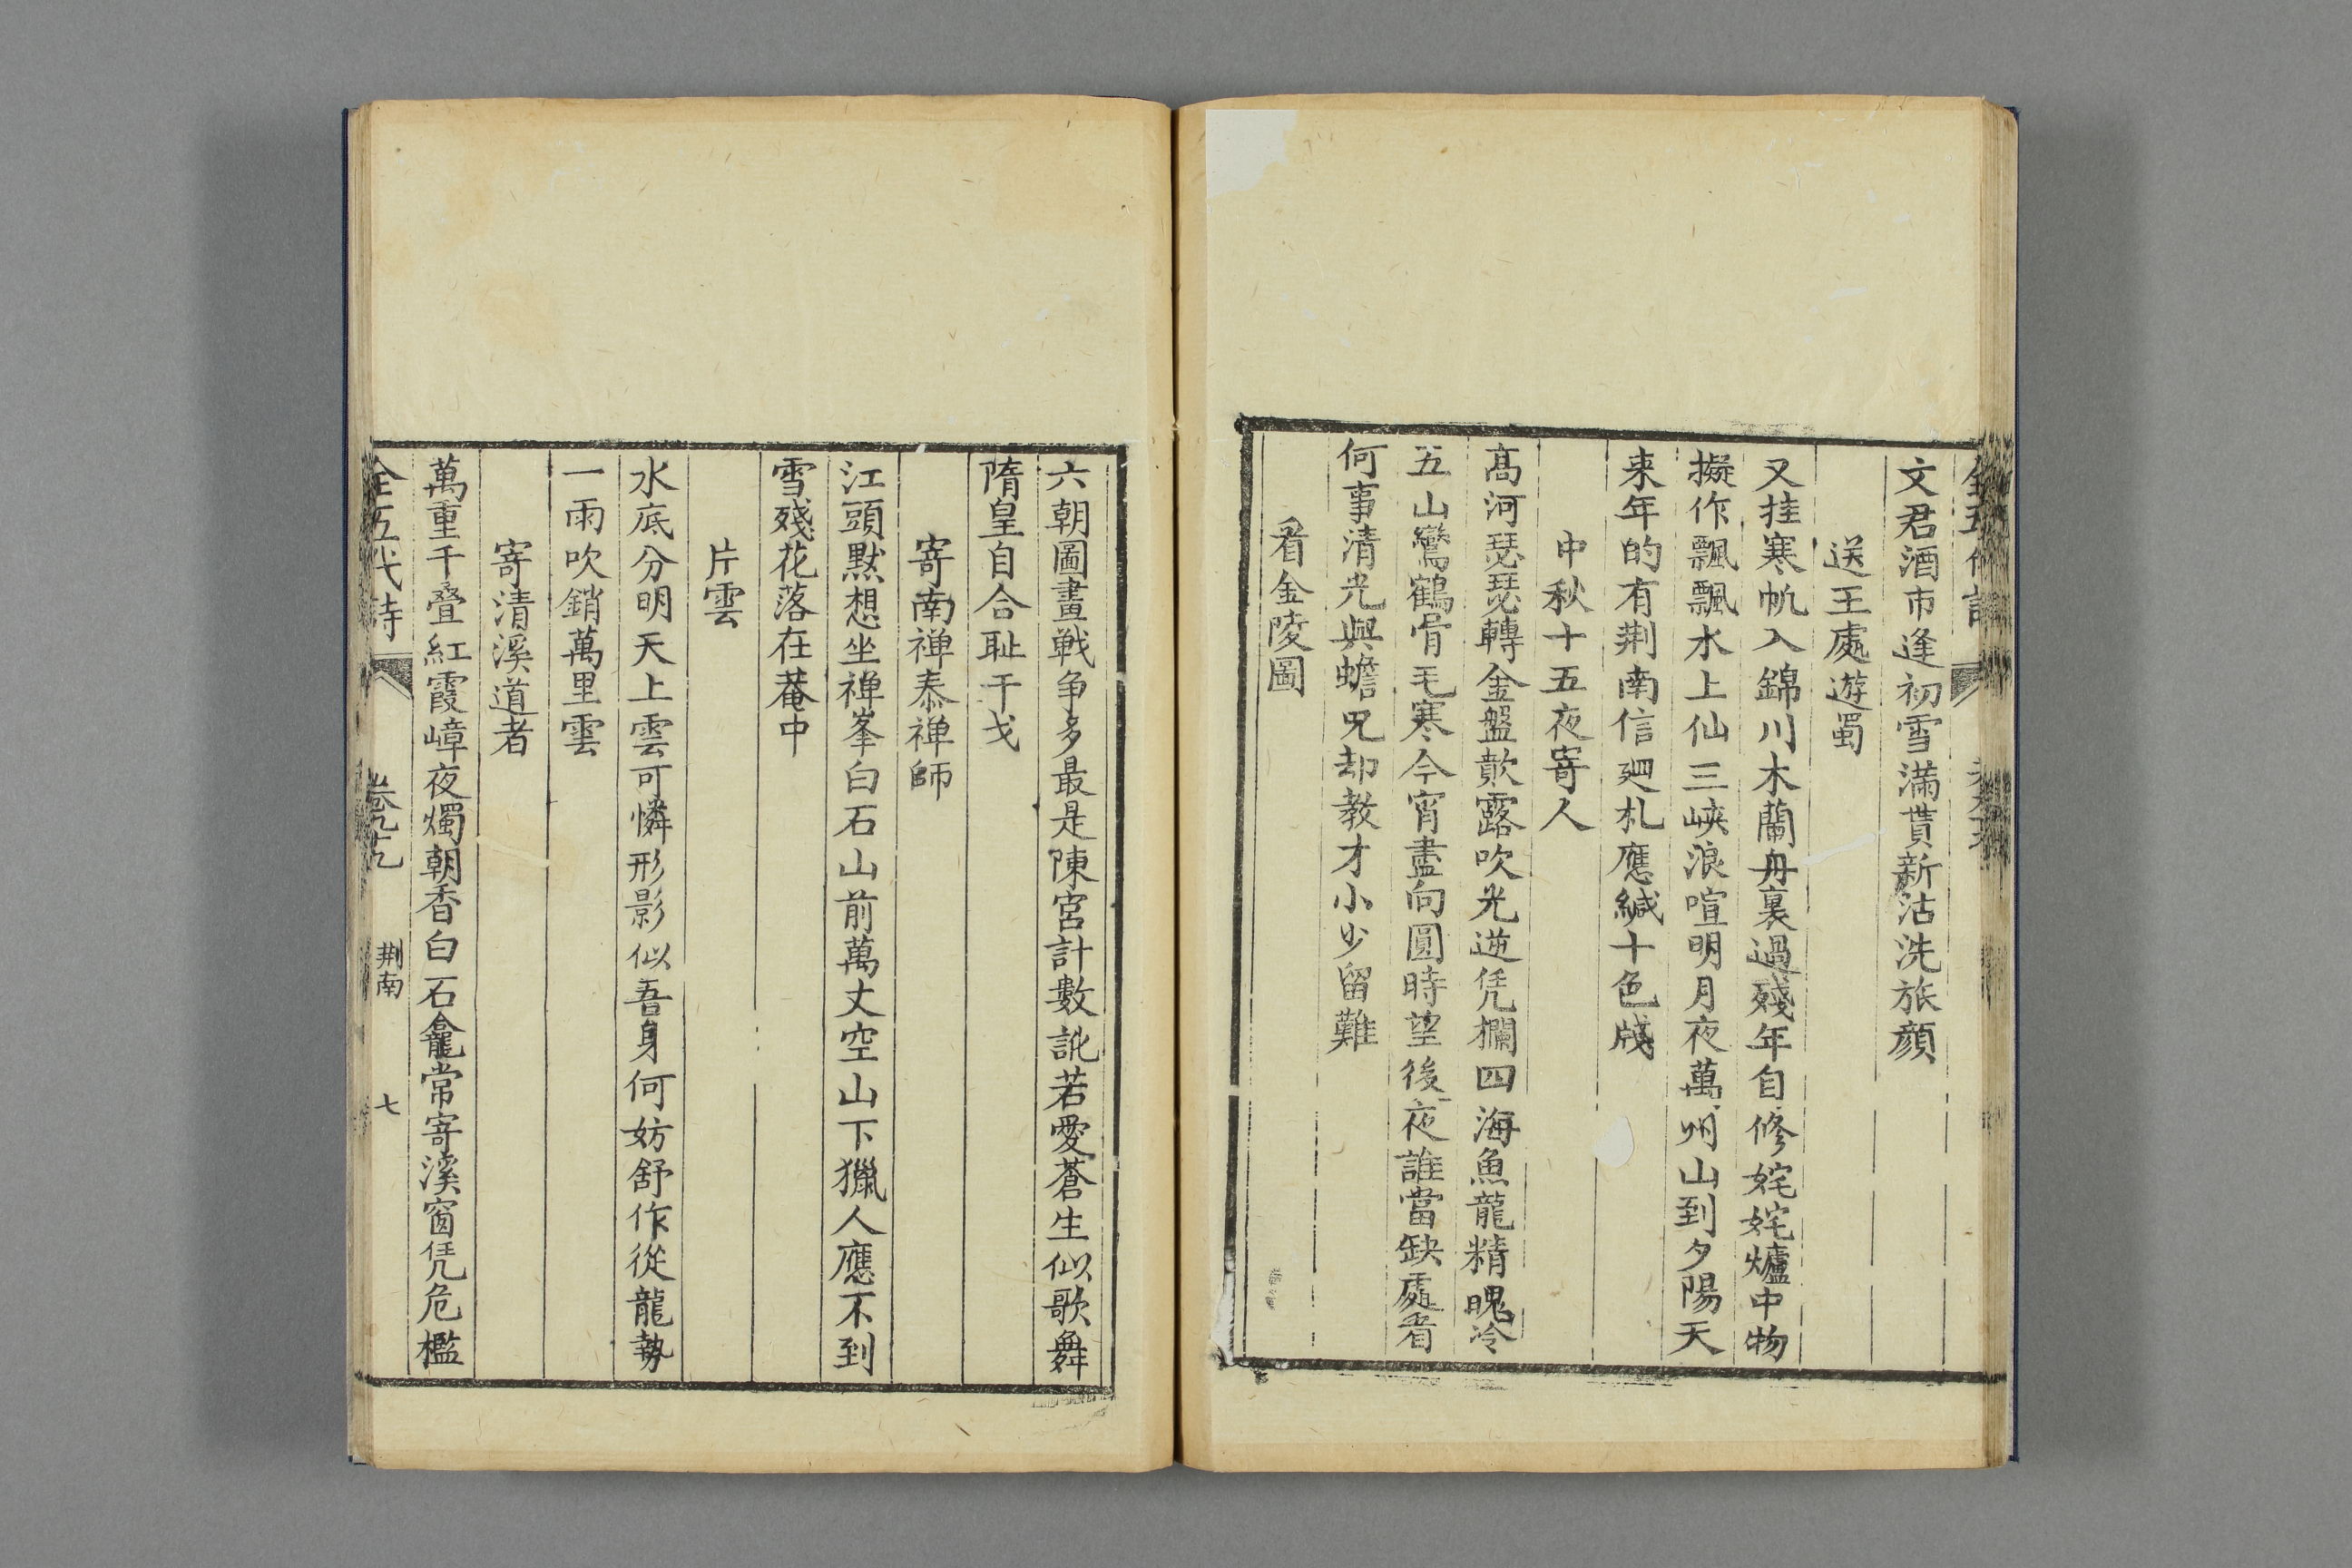 文君酒市逢初雪滿貰新沽洗旅顔
送王處遊蜀
又挂寒帆入錦川木蘭舟裏過殘年自修姹姹爐中物
擬作飄飄水上仙三峽浪喧明月夜萬州山到夕陽天
来年的有荆南信廻札應緘十色牋
中秋十五夜寄人
髙河瑟瑟轉金盤歕露吹光逆凭欄四海魚龍精魄冷
五山鸞鶴骨毛寒今宵盡向圓時望後夜誰當缺處看
何事清光與蟾兕却教才小少留難
看金陵圖
六朝圖畫戰争多最是陳宮計數訛若愛蒼生似歌舞
隋皇自合耻干戈
寄南禅泰禅師
江頭默想坐禅峯白石山前萬丈空山下獵人應不到
雪殘花落在菴中
片雲
水底分明天上雲可憐形影似吾身何妨舒作從龍勢
一雨吹銷萬里雲
寄清溪道者
萬重千叠紅霞嶂夜燭朝香白石龕常寄溪窗凭危檻
全五代詩 荆南 七